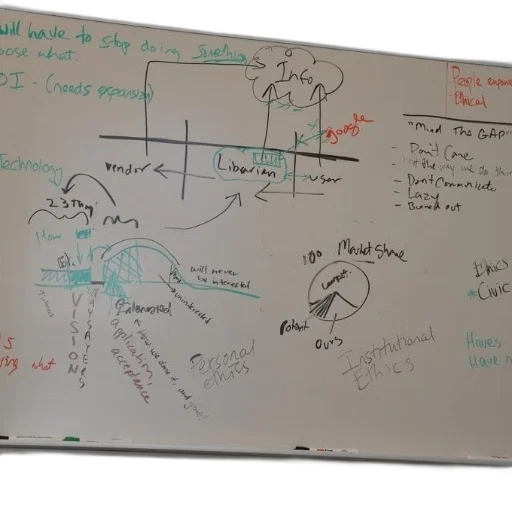 will have to stop doing something
oose what.
OI - (needs expansion)
Info
google
vendor
Librarian
user
Technology
23 Things
People empowe
- Ethical
"Mind The GAP"
- Don't Care
- not the way we do thin
- Don't Communicate
- Lazy
- Burned out
will never
be interested
uninterested
VISION
NAYSAYERS
Interested
application,
acceptance
How we done it, and gone!
Personal
Ethics
100
Market Share
Compet.
Potent
Ours
Institutional
Ethics
Ethics
Civic
Haves
Have n
ing what